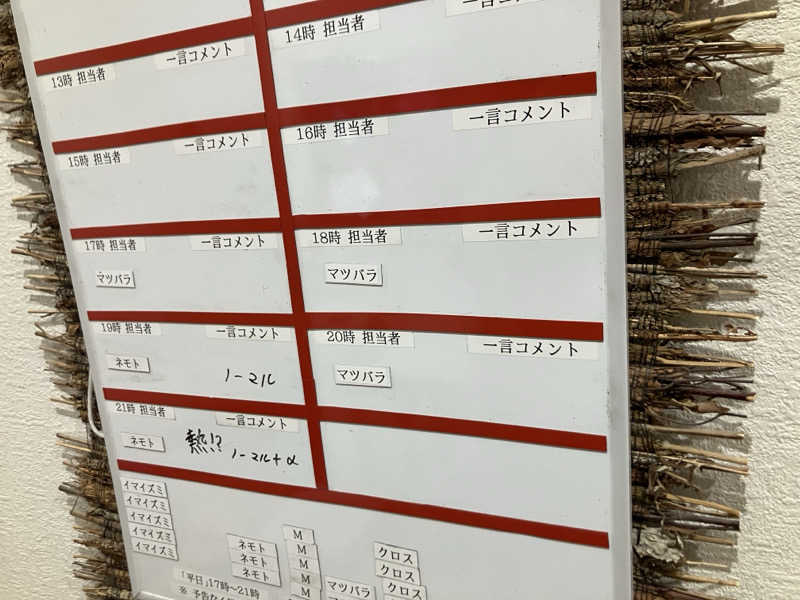 14時 担当者
一言コメント
13時 担当者 一言コメント
16時 担当者 一言コメント
15時 担当者 一言コメント
18時 担当者 一言コメント
17時 担当者 一言コメント
マツバラ
マツバラ
19時 担当者 一言コメント
ネモト
ノーマル
20時 担当者 一言コメント
マツバラ
21時 担当者 一言コメント
ネモト 熱!? ノーマル+α
イマイズミ
イマイズミ
イマイズミ
イマイズミ
イマイズミ
ネモト
ネモト
ネモト
M
M
M
M
M
マツバラ
クロス
クロス
クロス
「平日」17時~21時
※ 予告な